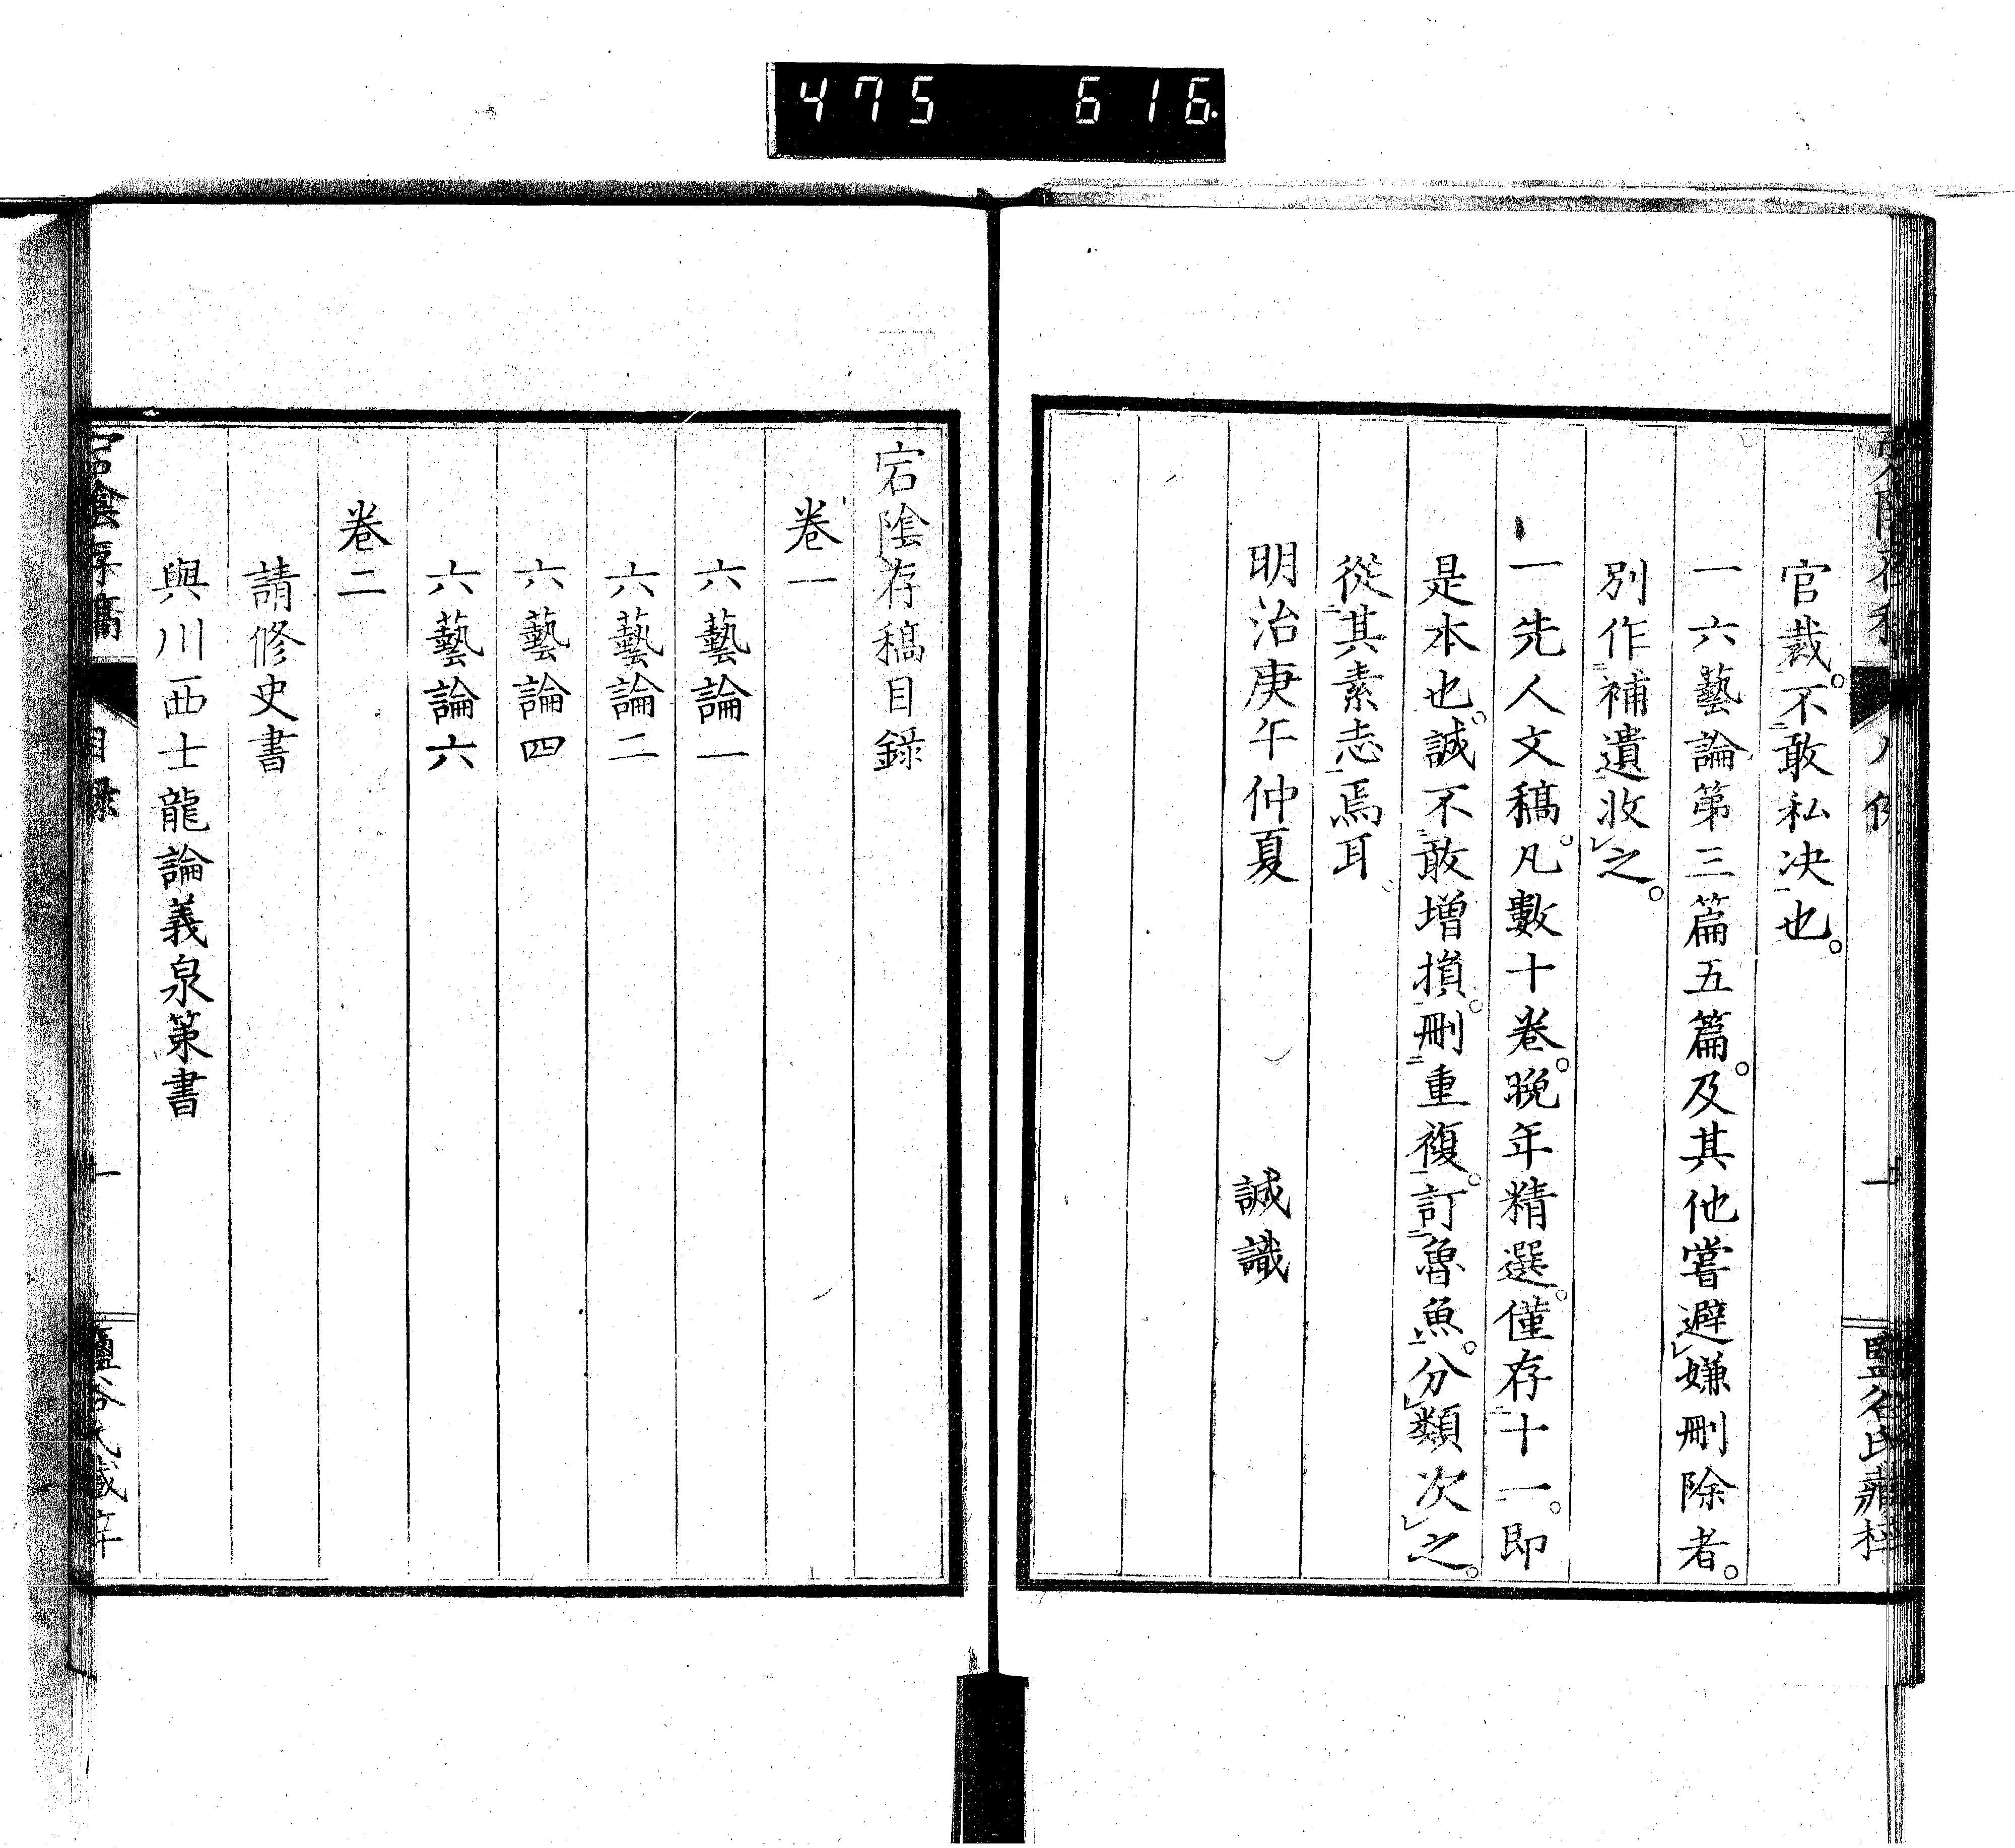 475 616
官裁。不敢私决也。
一六藝論第三篇五篇。及其他嘗避嫌刪除者。
別作補遺收之。
一先人文稿。凡數十卷。晚年精選。僅存十一。即
是本也。誠不敢增損。刪重複。訂魯魚。分類次之。
從其素志焉耳。
明治庚午仲夏 誠識
宕陰存稿目録
卷一
六藝論一
六藝論二
六藝論四
六藝論六
卷二
請修史書
與川西士龍論義泉策書
宕陰存稿 目録 一